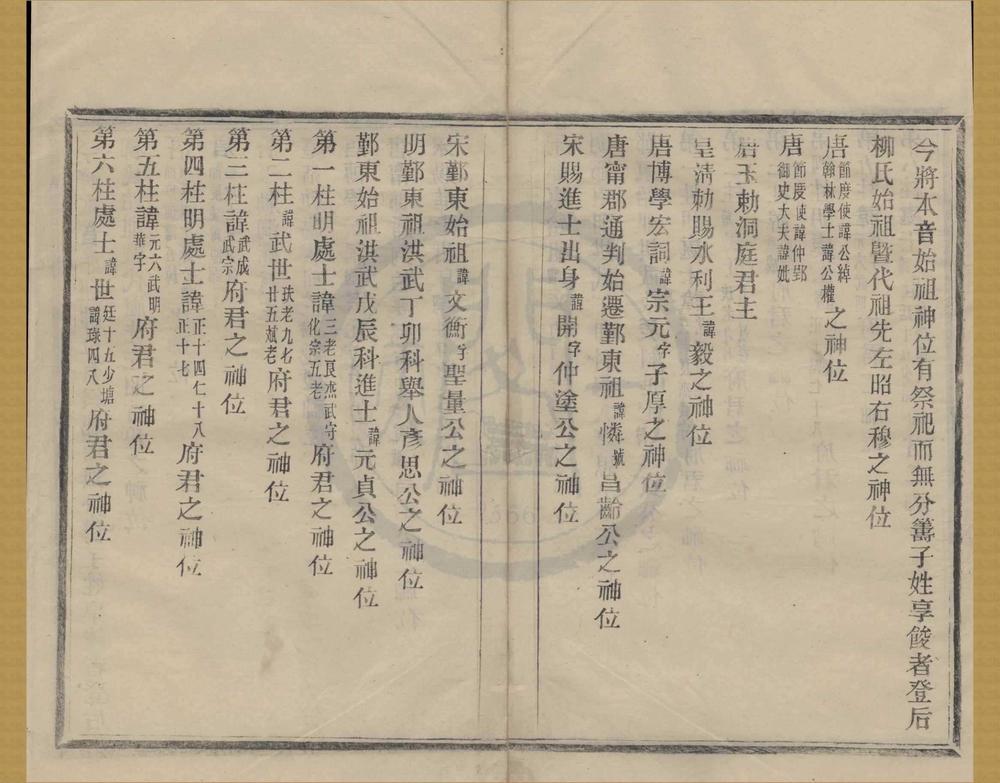 今將本音始祖神位有祭祀而無分籌子姓享餕者登后
柳氏始祖暨代祖先左昭右穆之神位
唐節度使諱公綽翰林學士諱公權之神位
唐節度使諱仲郢御史大夫諱玭
唐玉勅洞庭君主
皇清勅賜水利王諱毅之神位
唐博學宏詞諱宗元字子厚之神位
唐甯郡通判始遷鄞東祖諱憐號昌齡公之神位
宋賜進士出身諱開字仲塗公之神位
宋鄞東始祖諱文衡字聖量公之神位
明鄞東祖洪武丁卯科舉人彥思公之神位
鄞東始祖洪武戊辰科進士諱元貞公之神位
第一柱明處士諱三老艮杰武守化宗五老府君之神位
第二柱諱武世玞老九七廿五斌老府君之神位
第三柱諱武成武宗府君之神位
第四柱明處士諱正十四仁十八正十七府君之神位
第五柱諱元六武明華字府君之神位
第六柱處士諱世廷十五少塘諱琭四八府君之神位